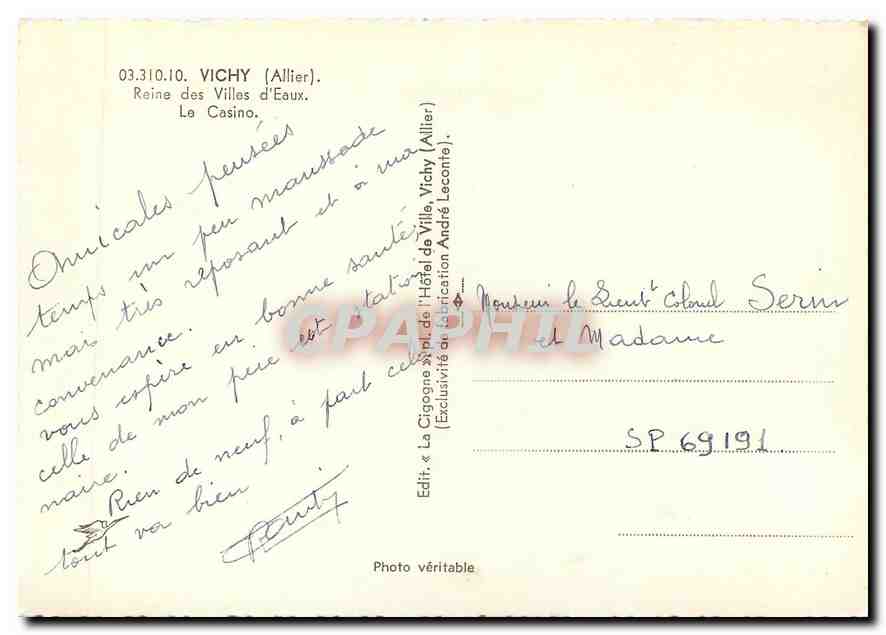 03.310.10. VICHY (Allier).
Reine des Villes d'Eaux.
Le Casino.
Amicales pensées
temps un peu maussade
mais très reposant et à ma
convenance.
vous espère en bonne santé,
celle de mon père est station
naire.
Rien de neuf, à part cela
tout va bien
Edit. « La Cigogne » pl. de l'Hôtel de Ville, Vichy (Allier)
(Exclusivité de fabrication André Leconte).
Monsieur le Lieut^t Colonel Serin
et Madame
SP 69191.
Photo véritable
CPAPHIL